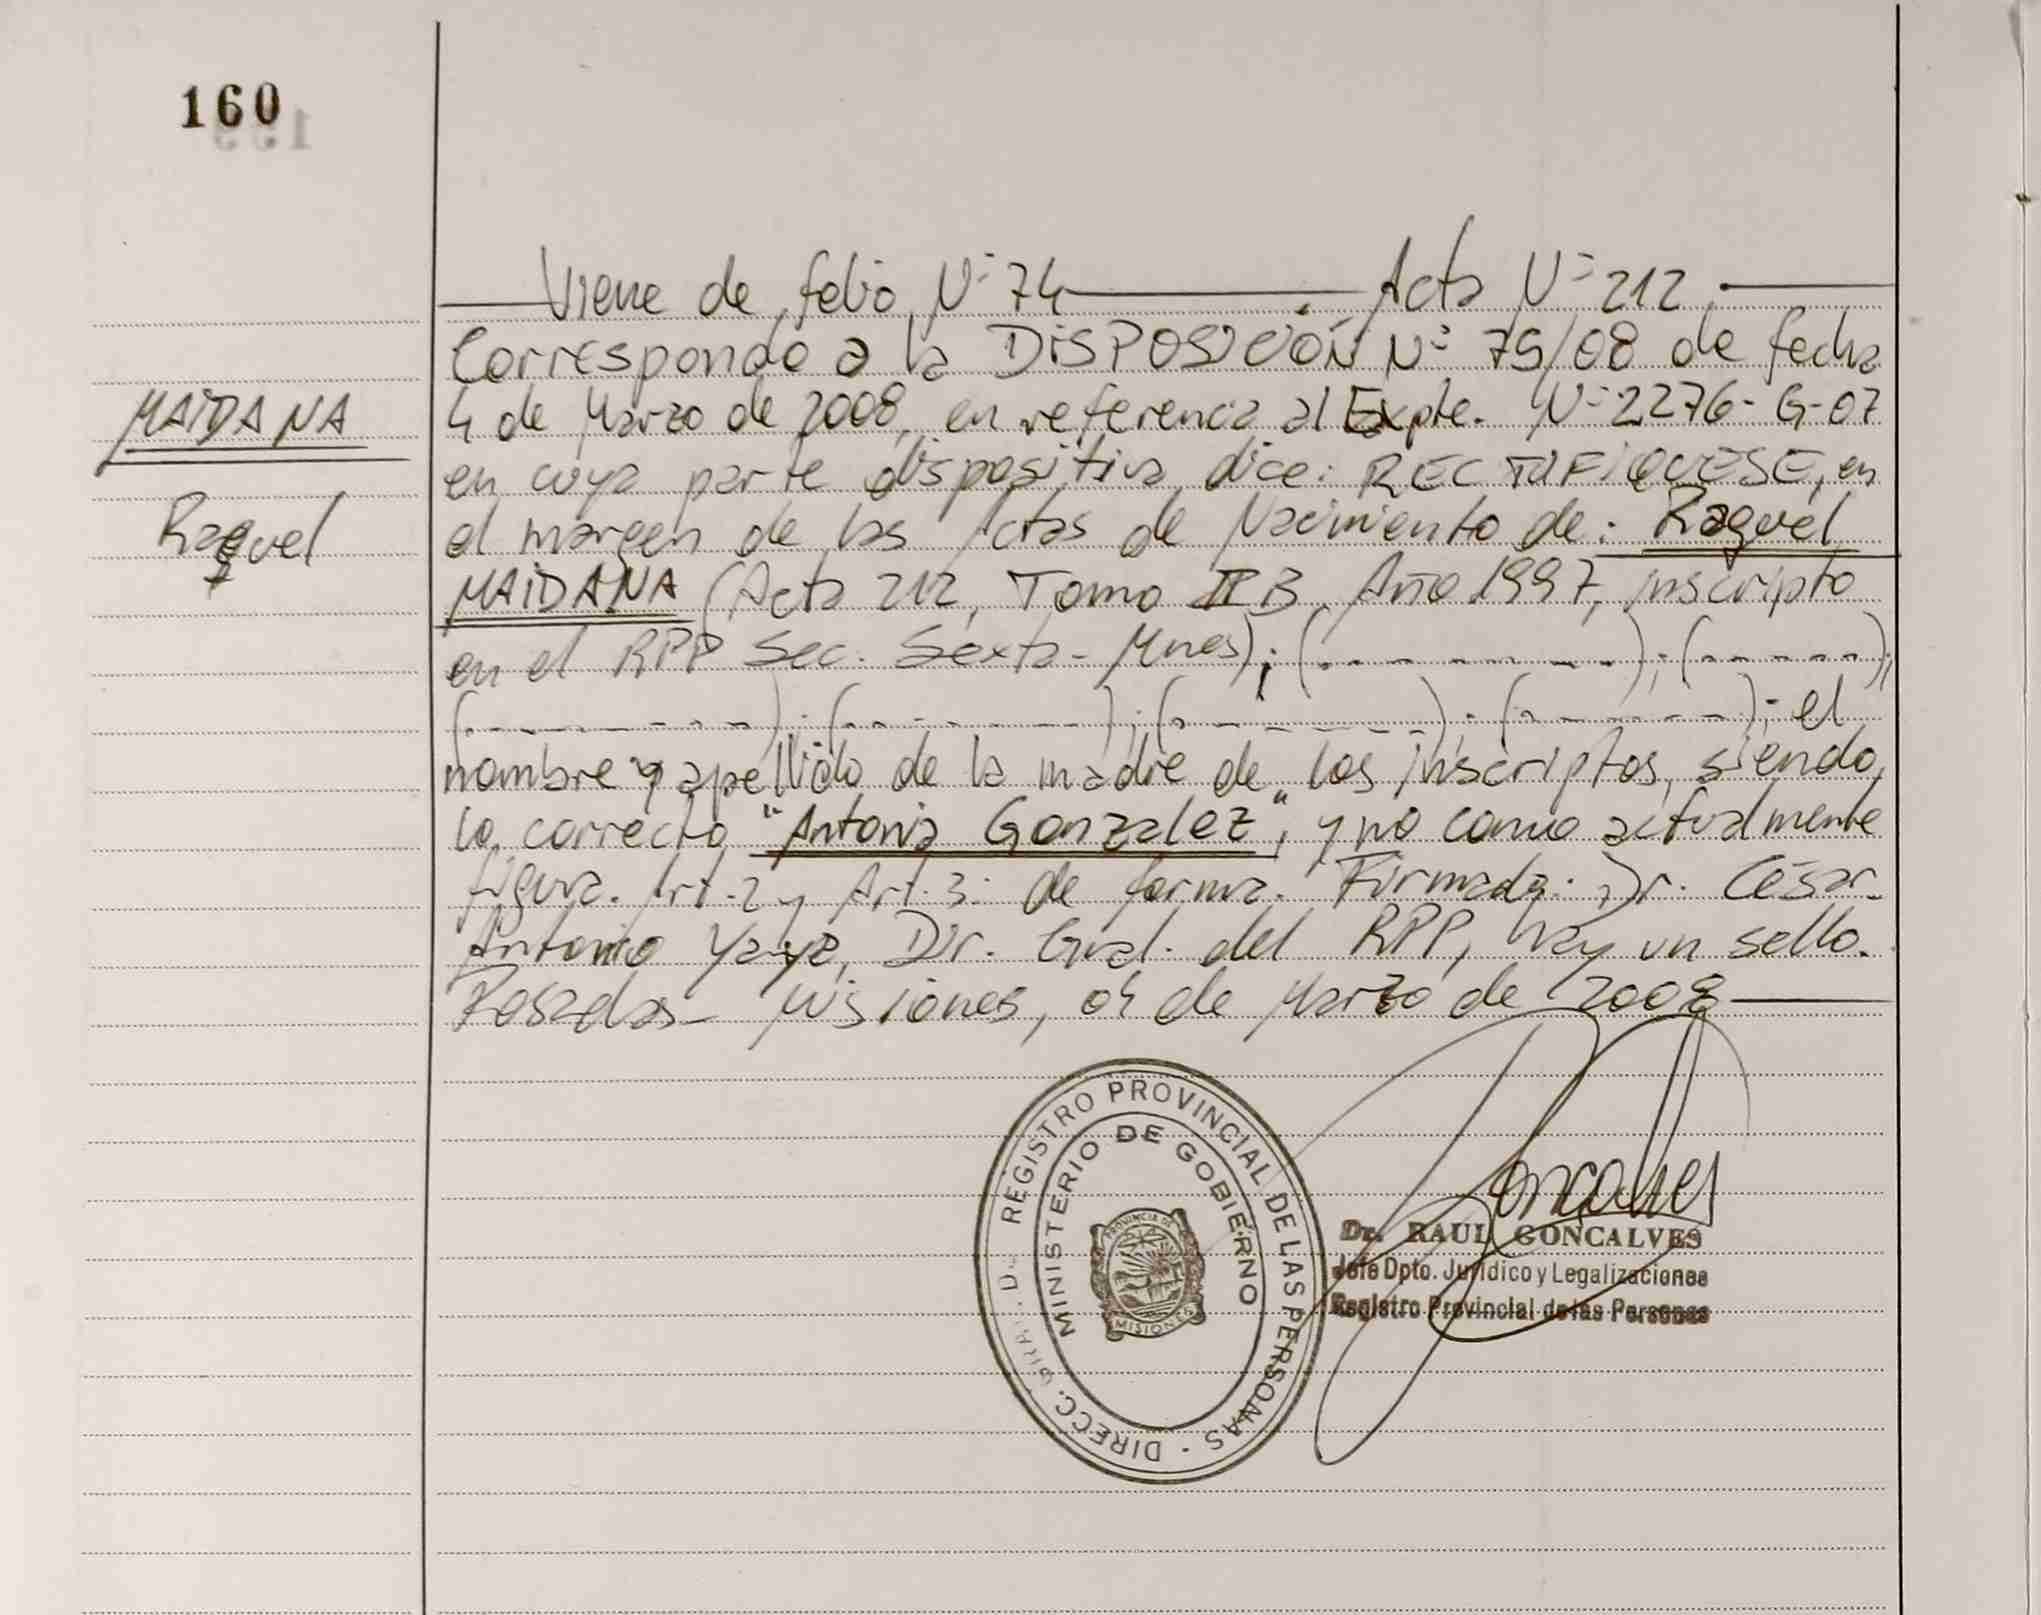 160
Viene de folio N° 74 — Acta N° 212 —
Corresponde a la DISPOSICIÓN N° 75/08 de fecha
4 de Marzo de 2008, en referencia al Expte. N° 2276-G-07
en cuya parte dispositiva dice: RECTIFIQUESE, en
el margen de las Actas de Nacimiento de: Raquel
MAIDANA (Acta 212, Tomo II B, Año 1997, inscripto
en el RPP Sec. Sexta - Mnes); (- - - - - - - - -); (- - - - - -);
(- - - - - - - - -); (- - - - - - - -); (- - - - - - - -); (- - - - - - -); el
nombre y apellido de la madre de los inscriptos, siendo
lo correcto "Antonia Gonzalez", y no como actualmente
figura. Art. 2 y Art. 3: de forma. Firmado: Dr. César
Antonio Yaya, Dir. Gral. del RPP, hay un sello.
Posadas - Misiones, 04 de Marzo de 2008 —
MAIDANA
Raquel
REGISTRO PROVINCIAL DE LAS PERSONAS - DIRECC. GRAL. DE
MINISTERIO DE GOBIERNO
PROVINCIA DE
MISIONES
Goncalves
Dr. RAUL GONCALVES
Jefe Dpto. Jurídico y Legalizaciones
Registro Provincial de las Personas